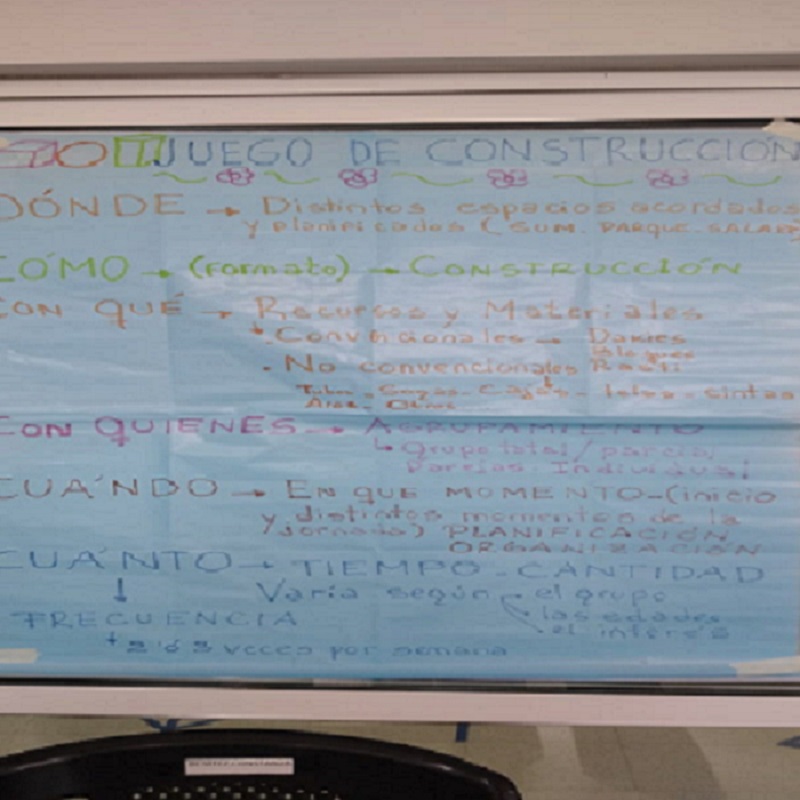 JUEGO DE CONSTRUCCIÓN
DÓNDE → Distintos espacios acordados
y planificados (SUM. PARQUE. SALAS)
CÓMO → (formato) → CONSTRUCCIÓN
CON QUÉ → Recursos y Materiales
- Convencionales → Dakies
Bloques
- No convencionales Rasti
Tubos - Conos - Cajas - telas - cintas
CON QUIENES → AGRUPAMIENTO
↳ Grupo total / parcial
Parejas Individual
CUÁNDO → EN QUE MOMENTO - (inicio
y distintos momentos de la
jornada) PLANIFICACIÓN
ORGANIZACIÓN
CUÁNTO → TIEMPO - CANTIDAD
↓ Varía según el grupo
FRECUENCIA las edades
el interés
2 ó 3 veces por semana